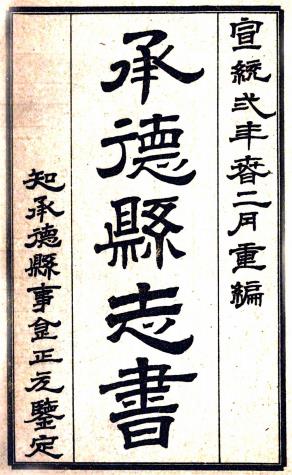 宣統弍年春二月重編
承德縣志書
知承德縣事金正元鑒定